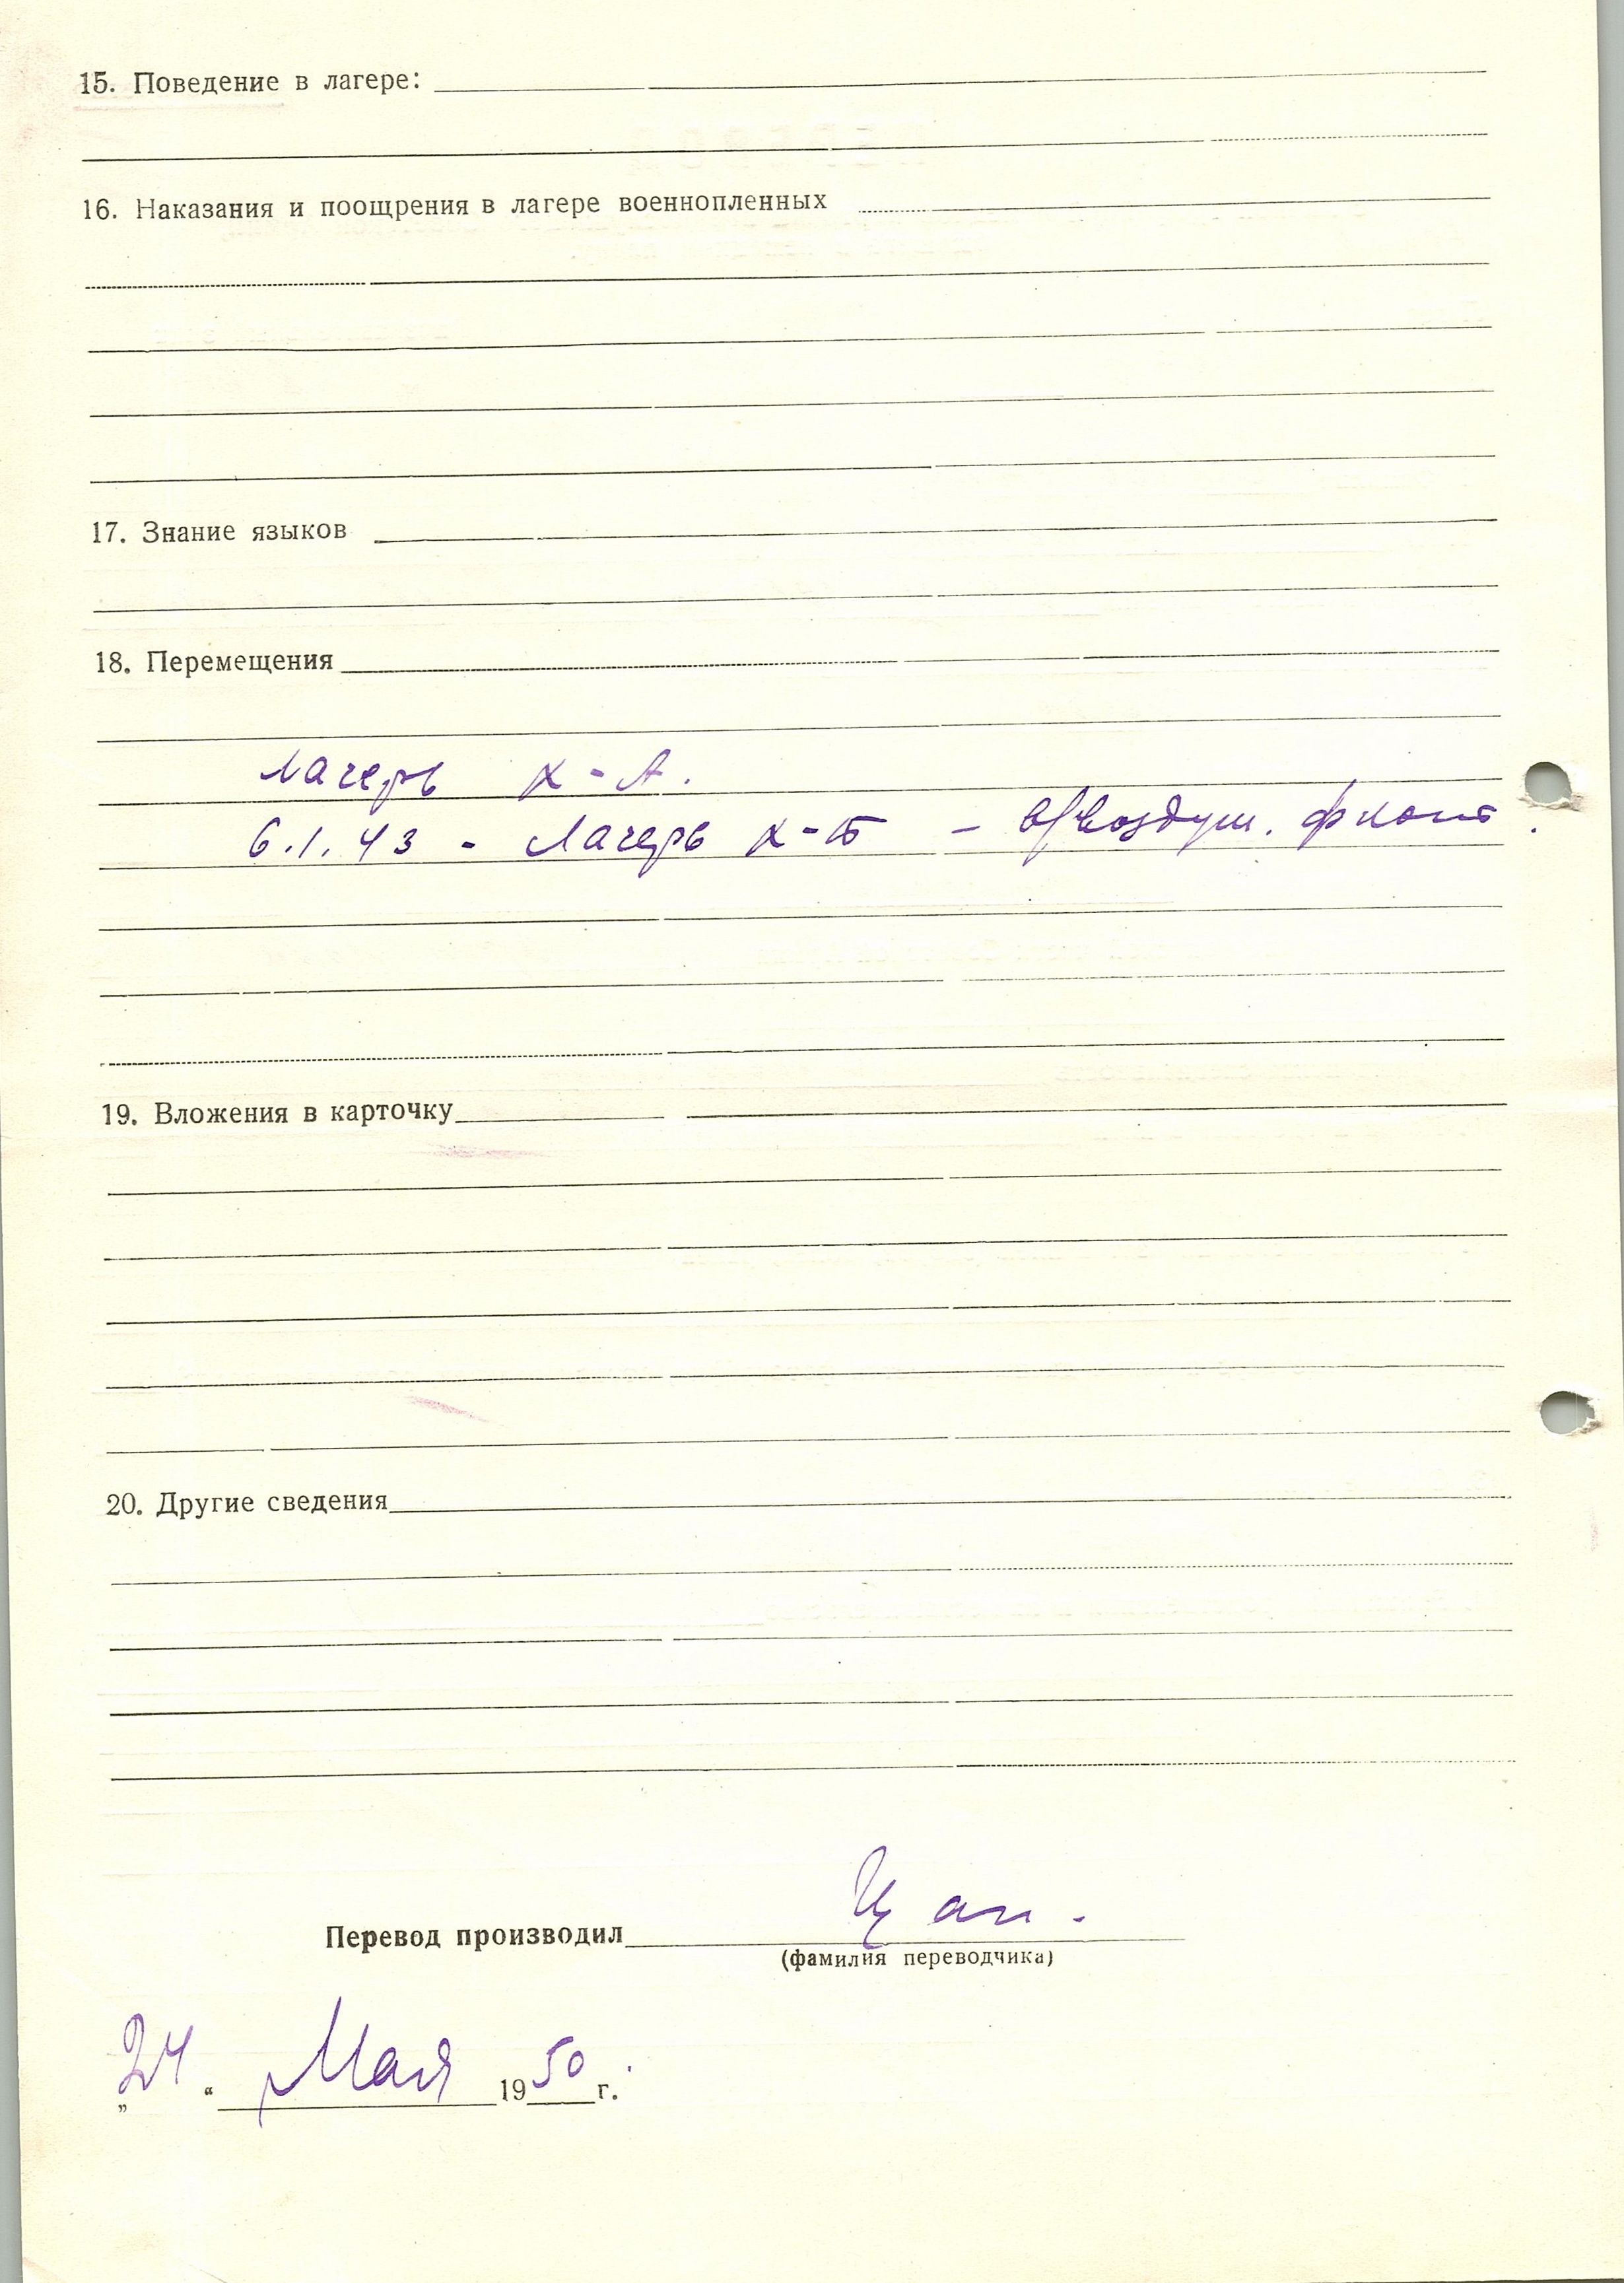 15. Поведение в лагере:
16. Наказания и поощрения в лагере военнопленных
17. Знание языков
18. Перемещения
лагерь X-А.
6.1.43 - Лагерь X-Б - в/воздуш. флот.
19. Вложения в карточку
20. Другие сведения
Перевод производил Цап.
(фамилия переводчика)
„24“ Мая 1950 г.